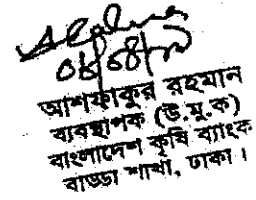 আশফাকুর রহমান
ব্যবস্থাপক (উ.মু.ক)
বাংলাদেশ কৃষি ব্যাংক
বাড্ডা শাখা, ঢাকা।